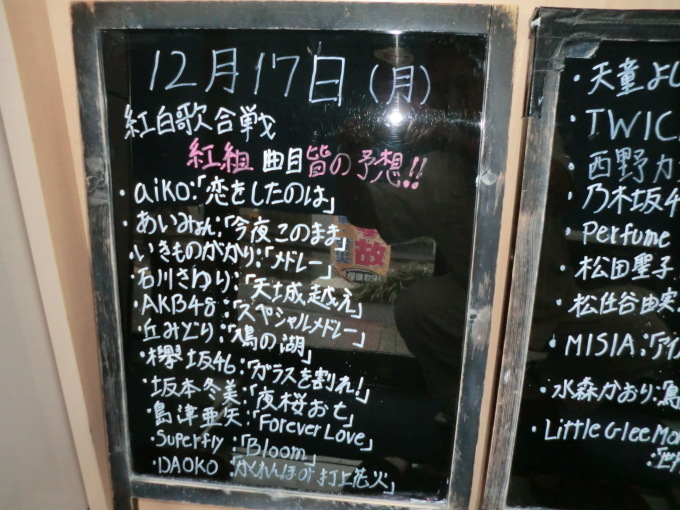 12月17日(月)
紅白歌合戦
紅組 曲目皆の予想!!
・aiko:「恋をしたのは」
・あいみょん:「今夜このまま」
・いきものがかり:「メドレー」
・石川さゆり:「天城越え」
・AKB48:「スペシャルメドレー」
・丘みどり:「鳰の湖」
・欅坂46:「ガラスを割れ!」
・坂本冬美:「夜桜お七」
・島津亜矢:「Forever Love」
・Superfly:「Bloom」
・DAOKO:「かくれんぼor打上花火」
・天童よし
・TWIC
・西野カ
・乃木坂4
・Perfume
・松田聖子
・松任谷由実
・MISIA:「アイ
・水森かおり:「
・Little Glee Mo
:「世
故